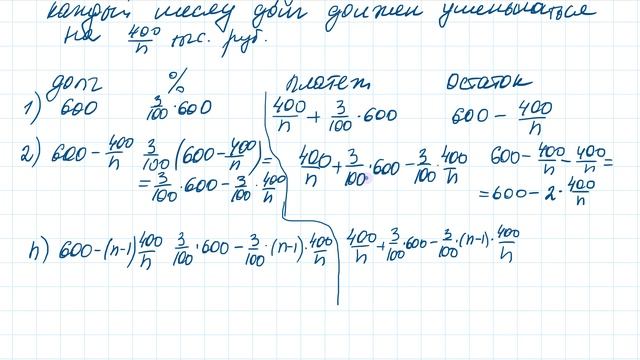 каждый месяц долг должен уменьшаться
на 400/n тыс. руб.
долг % платеж остаток
1) 600 3/100·600 400/n + 3/100·600 600 − 400/n
2) 600 − 400/n 3/100(600 − 400/n) = 400/n + 3/100·600 − 3/100·400/n 600 − 400/n − 400/n =
= 3/100·600 − 3/100·400/n = 600 − 2·400/n
n) 600 − (n−1)400/n 3/100·600 − 3/100·(n−1)·400/n 400/n + 3/100·600 − 3/100·(n−1)·400/n